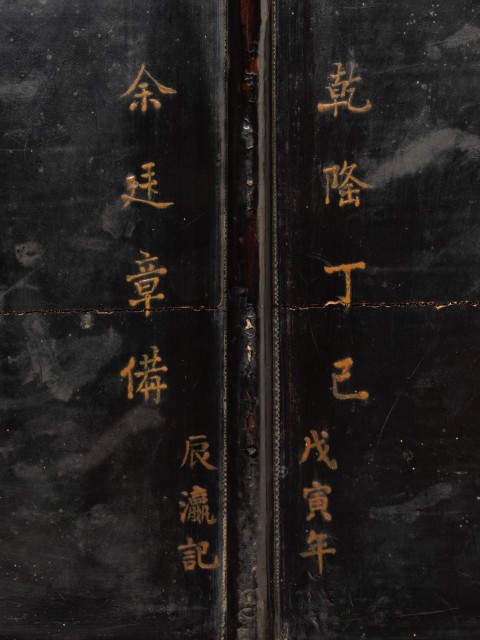 乾隆丁巳
戊寅年
余廷章備
辰瀛記